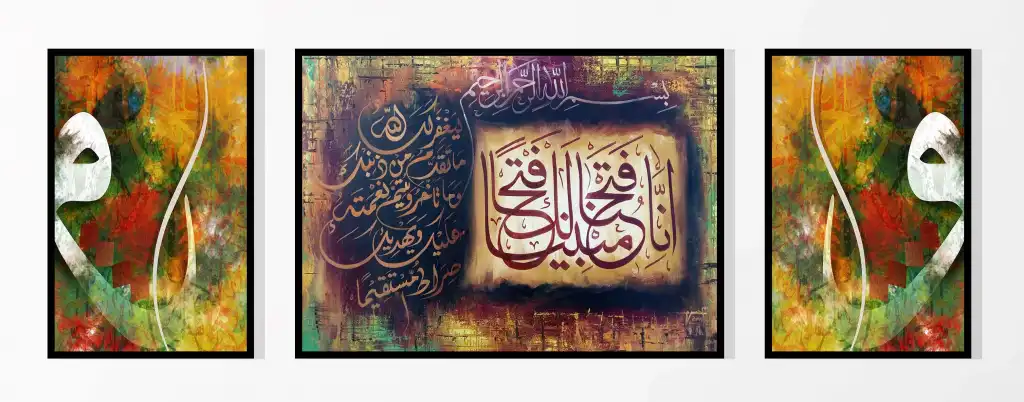 بسم الله الرحمن الرحيم
إنا فتحنا لك فتحا مبينا
ليغفر لك الله
ما تقدم من ذنبك
وما تأخر ويتم نعمته
عليك ويهديك
صراطا مستقيما